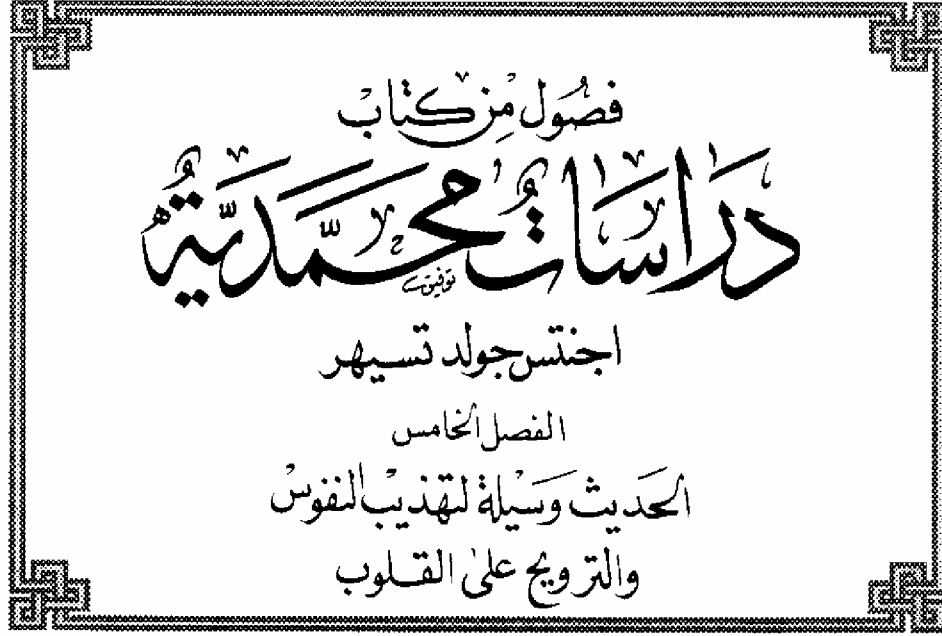 فصُول مِنْ كتابْ
دَرَاسَاتٌ محَمَّدَيَّةٌ
توفيق
اجنتس جولد تسيهر
الفصل الخامس
الحَديث وَسيْلة لتهذيب النفوسْ
والترويح على القلوب